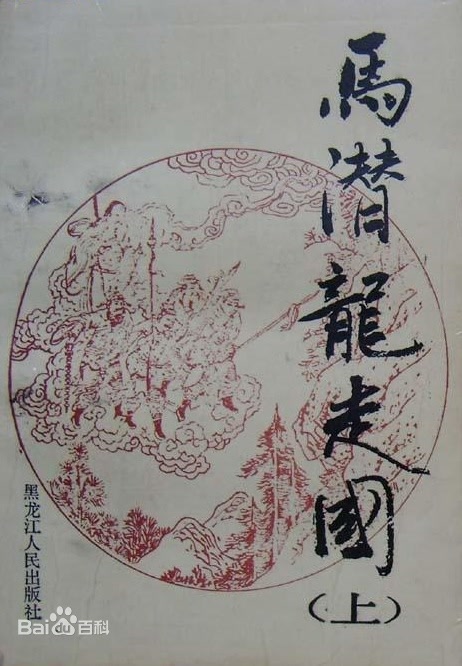 馬潜龍走國
(上)
黑龙江人民出版社
Bai du 百科